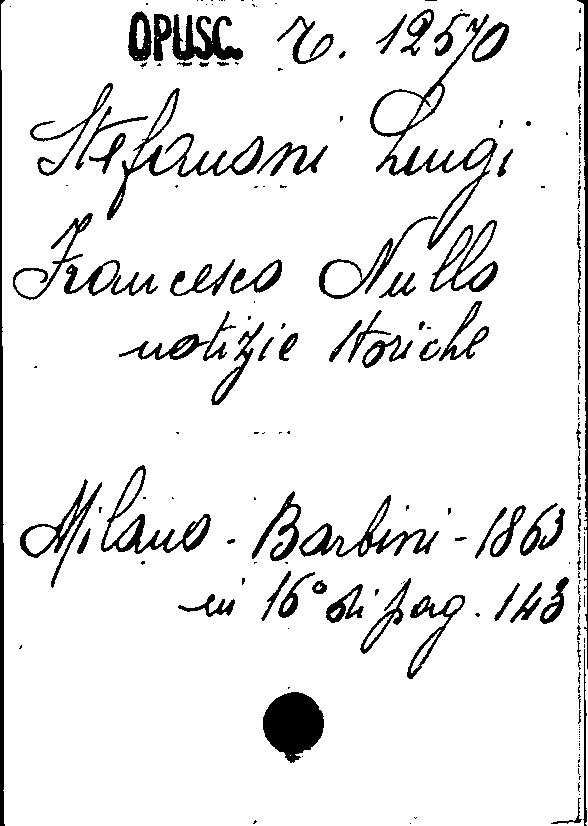 OPUSC. r. 12570
Stefanoni Luigi
Francesco Nullo
notizie storiche
Milano - Barbini - 1863
in 16° di pag. 143